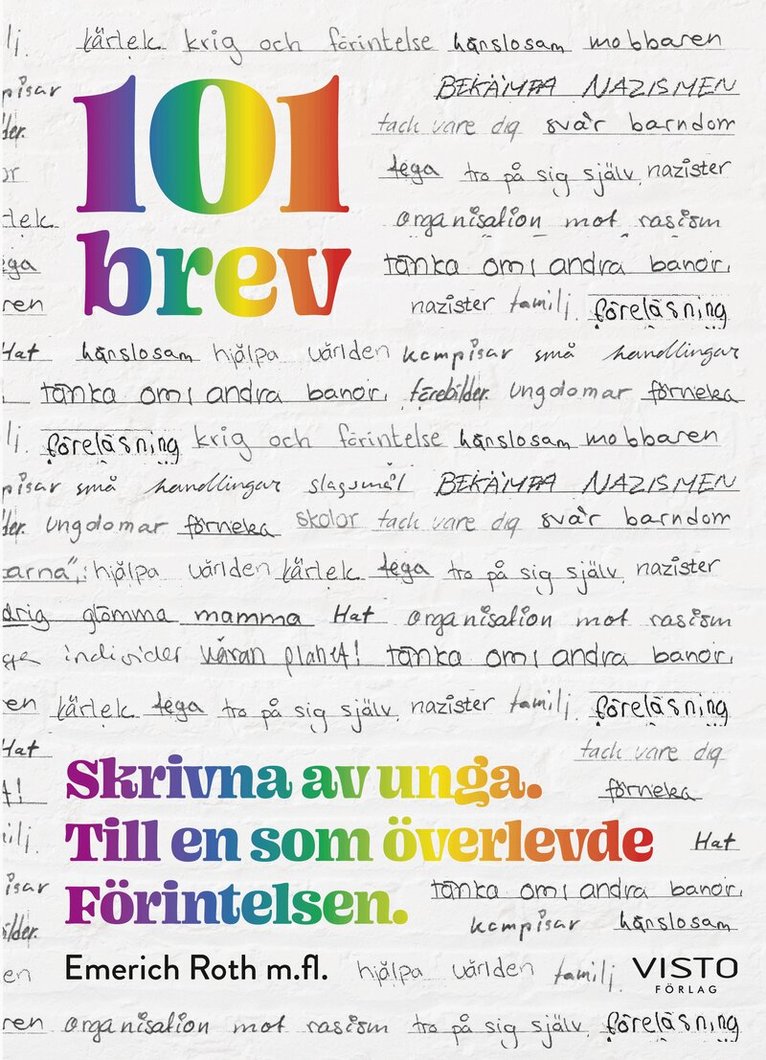 lj. kärlek krig och förintelse hänslosam mobbaren
pisar BEKÄMPA NAZISMEN
101
der. tack vare dig svår barndom
tega tro på sig själv nazister
lek. organisation mot rasism
brev
ega tänka omi andra banor.
ren nazister familj. föreläsning
Hat hänslosam hjälpa världen kompisar små handlingar
tänka omi andra banor. förebilder. Ungdomar förneka
lj. föreläsning krig och förintelse hänslosam mobbaren
pisar små handlingar slagsmål BEKÄMPA NAZISMEN
der. Ungdomar förneka skolor tack vare dig svår barndom
arna", hjälpa världen kärlek tega tro på sig själv nazister
drig glömma mamma Hat organisation mot rasism
individer våran planet! tänka omi andra banor.
en kärlek tega tro på sig själv nazister familj. föreläsning
Hat tack vare dig
Skrivna av unga.
förneka
Till en som överlevde Hat
isar tänka omi andra banor.
Förintelsen.
ilder. kompisar hänslosam
Emerich Roth m.fl. hjälpa världen familj. VISTO
FÖRLAG
en
ren organisation mot rasism tro på sig själv föreläsning